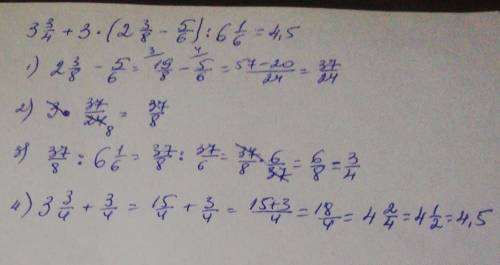 3 3/4 + 3 · (2 3/8 − 5/6) : 6 1/6 = 4,5
1) 2 3/8 − 5/6 = 19/8 ³ − 5/6 ⁴ = 57−20/24 = 37/24
2) 3 · 37/24 8 = 37/8
3) 37/8 : 6 1/6 = 37/8 : 37/6 = 37/8 · 6/37 = 6/8 = 3/4
4) 3 3/4 + 3/4 = 15/4 + 3/4 = 15+3/4 = 18/4 = 4 2/4 = 4 1/2 = 4,5